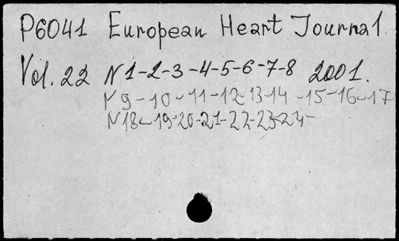 P6041 European Heart Journal
Vol. 22 N 1-2-3-4-5-6-7-8 2001.
N 9-10-11-12-13-14-15-16-17
N18-19-20-21-22-23-24-